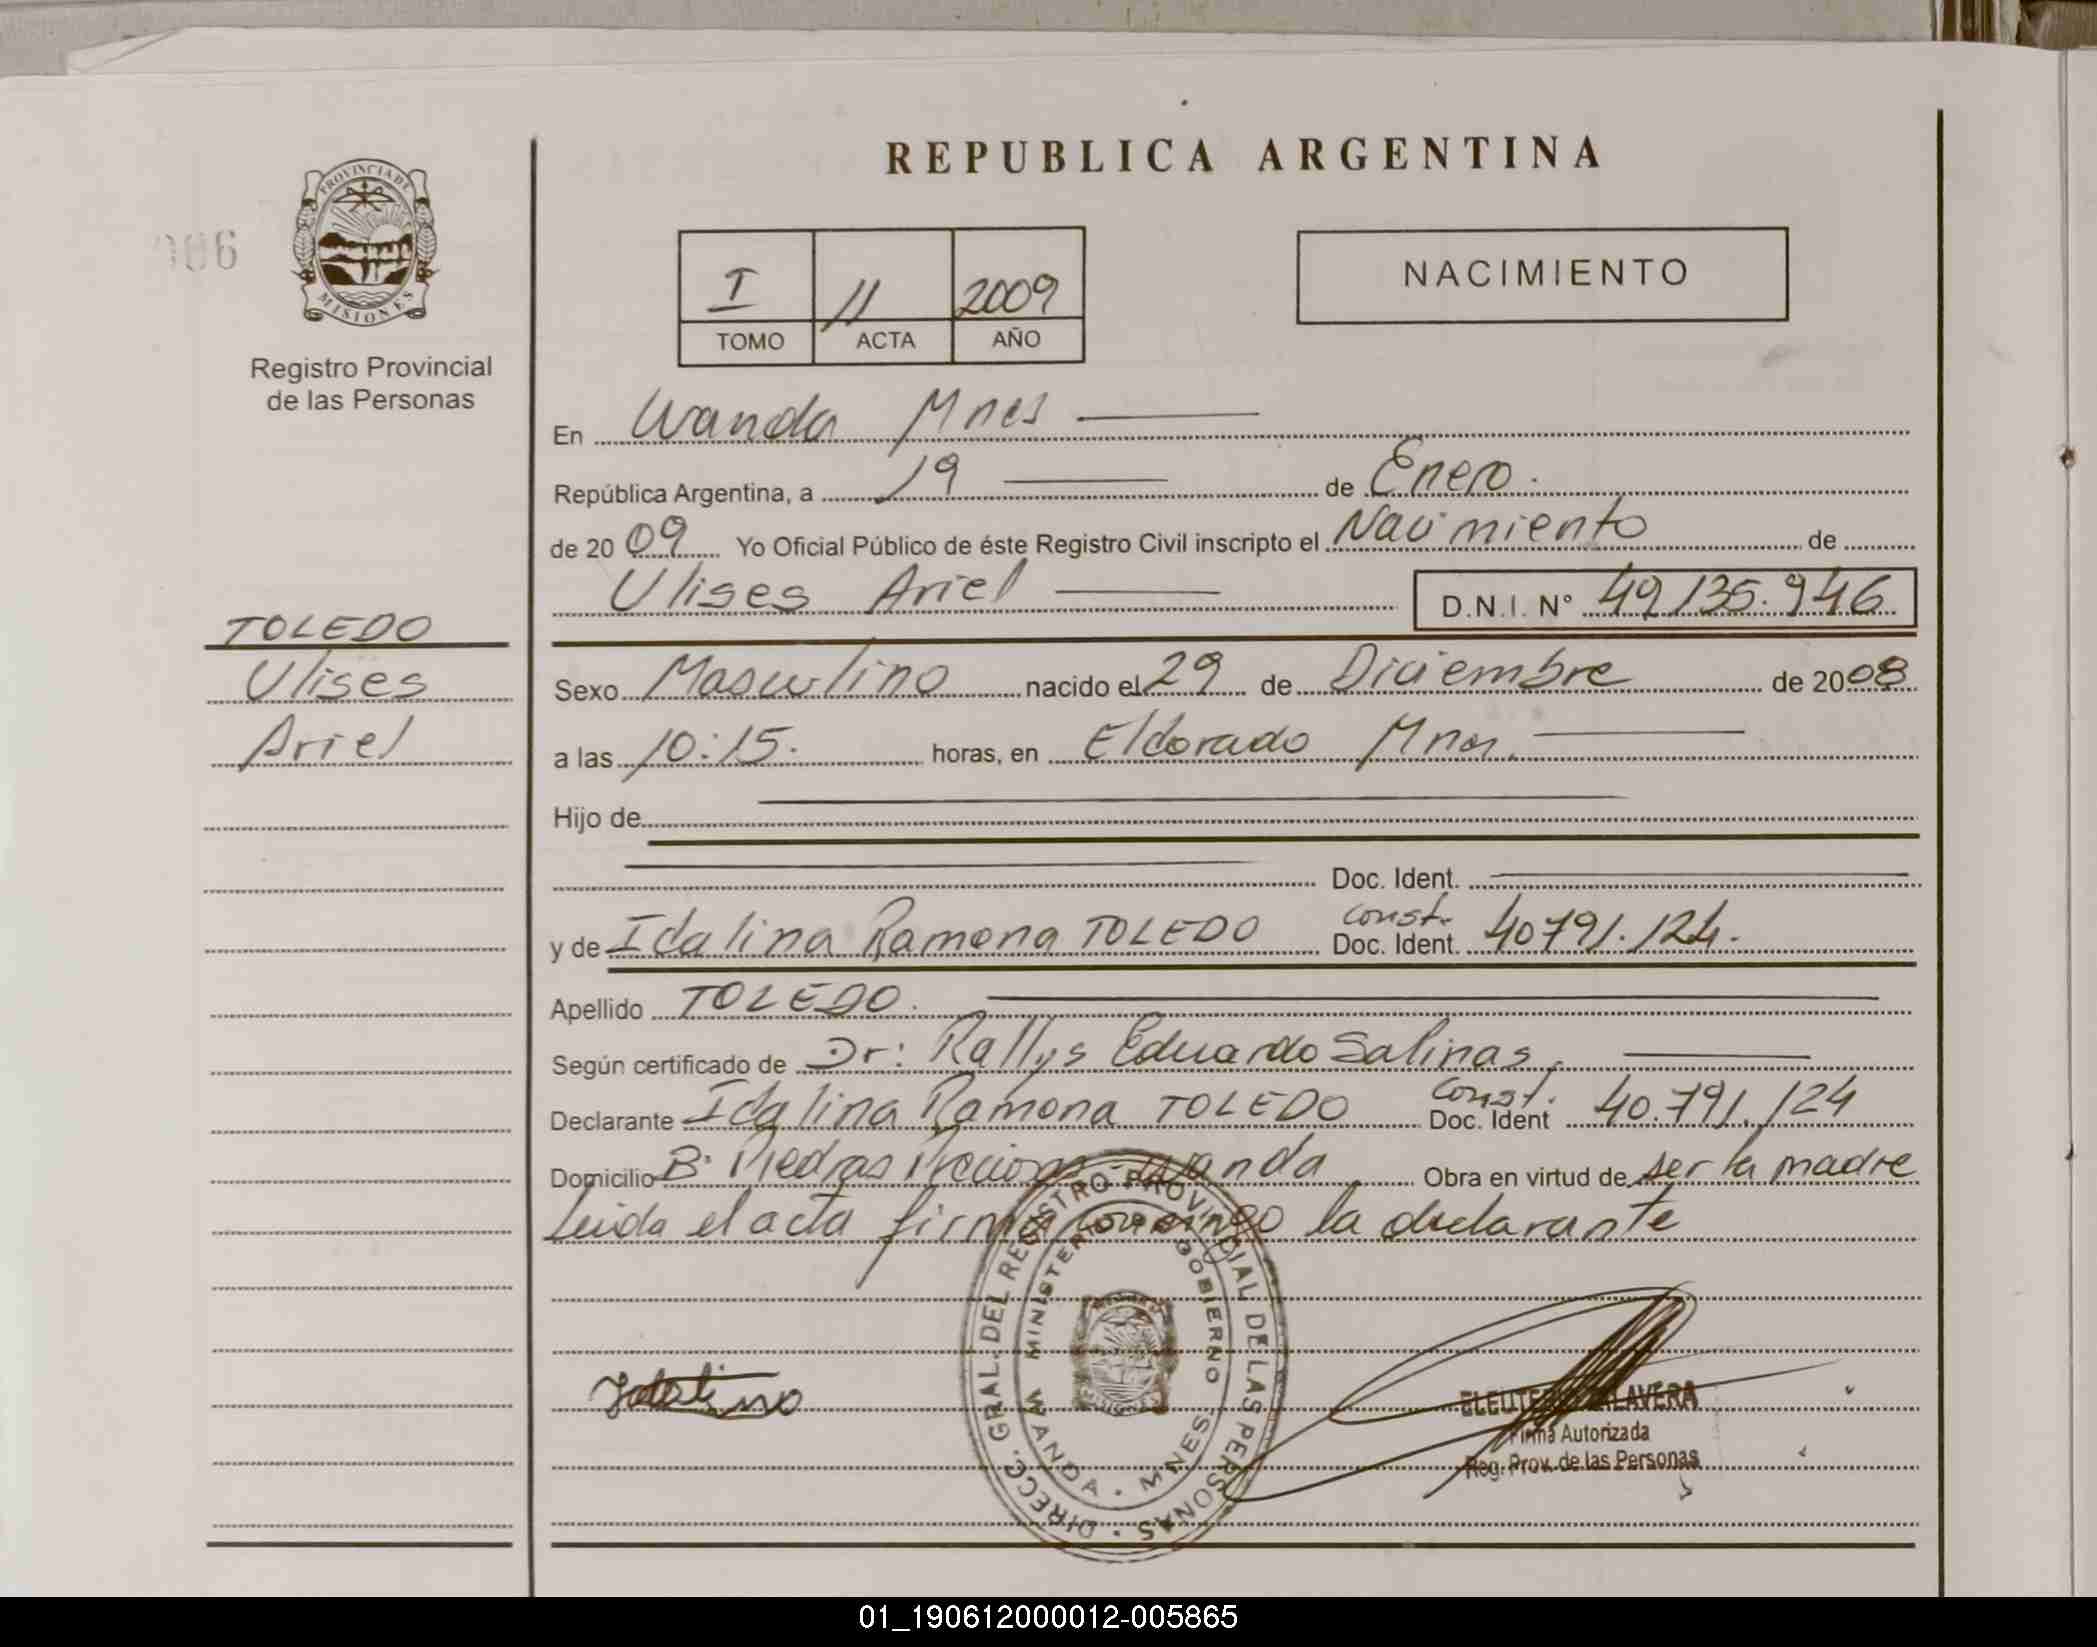 REPUBLICA ARGENTINA
PROVINCIA DE
MISIONES
Registro Provincial
de las Personas
I 11 2009
TOMO ACTA AÑO
NACIMIENTO
En Wanda Mnes
República Argentina, a 19 de Enero.
de 2009 Yo Oficial Público de éste Registro Civil inscripto el Nacimiento de
Ulises Ariel D.N.I. N° 49.135.946
TOLEDO
Ulises
Ariel
Sexo Masculino nacido el 29 de Diciembre de 2008
a las 10:15. horas, en Eldorado Mnes.
Hijo de
Doc. Ident.
y de Idalina Ramona TOLEDO Const. Doc. Ident. 40791.124.
Apellido TOLEDO.
Según certificado de Dr: Rallys Eduardo Salinas,
Declarante Idalina Ramona TOLEDO Const. Doc. Ident 40.791.124
Domicilio B° Piedras Preciosas - Wanda Obra en virtud de ser la madre
Leida el acta firma conmigo la declarante
DIRECC. GRAL. DEL REGISTRO PROVINCIAL DE LAS PERSONAS
MINISTERIO DE GOBIERNO
WANDA - MNES.
Idalina
ELEUTERIO TALAVERA
Firma Autorizada
Reg. Prov. de las Personas
01_190612000012-005865